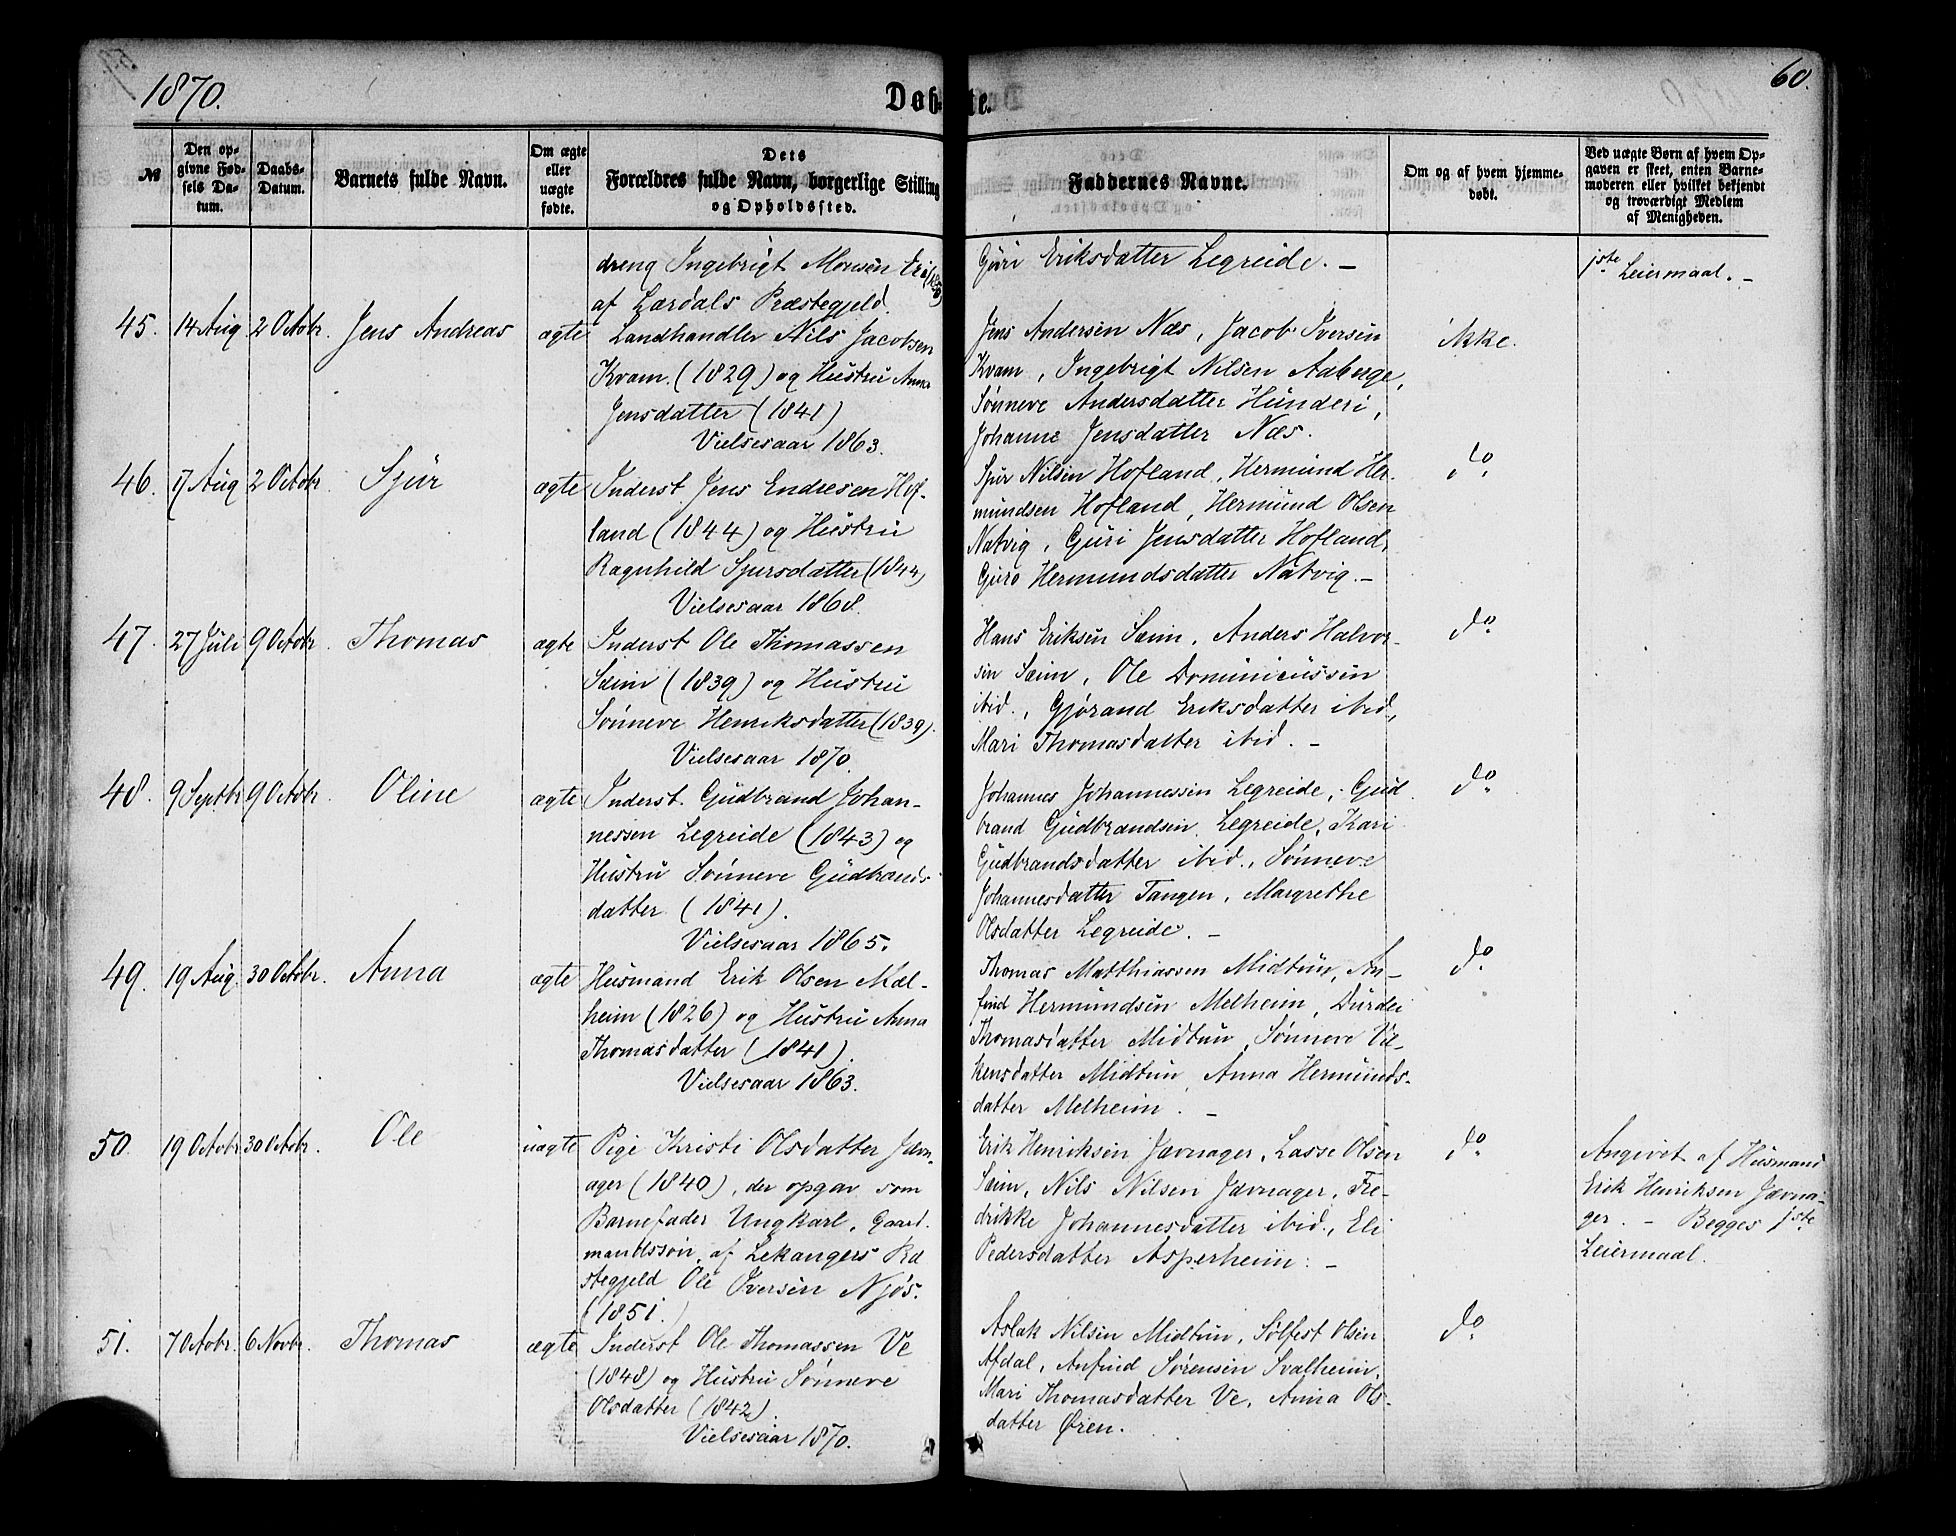 1870.
Døbte.
60.
№
Den opgivne Fødsels Datum.
Daabs-Datum.
Barnets fulde Navn.
Om ægte eller uægte fødte.
Dets Forældres fulde Navn, borgerlige Stilling og Opholdssted.
Faddernes Navne.
Om og af hvem hjemmedøbt.
Ved uægte Børn af hvem Opgaven er skeet, enten Barnemoderen eller hvilket bekjendt og troværdigt Medlem af Menigheden.
dreng Ingebrigt Monsen
af Lærdals Præstegjeld.
Guri Eriksdatter Legreide. –
1ste Leiermaal. –
45. 14 Aug 2 Octobr. Jens Andreas ægte
Landhandler Nils Jacobsen
Kvam. (1829) og Hustru Anna
Jensdatter (1841)
Vielsesaar 1863.
Jens Andersen Næs, Jacob Iversen
Kvam, Ingebrigt Nilsen Aaberge,
Sønneve Andersdatter Hunderi,
Johanne Jensdatter Næs.
ikke.
46. 17 Aug 2 Octobr Sjur ægte
Inderst Jens Endresen Hof-
land (1844) og Hustru
Ragnhild Sjursdatter (1844)
Vielsesaar 1868.
Sjur Nilsen Hofland, Hermund Her-
mundsen Hofland, Hermund Olsen
Natvig, Guri Jensdatter Hofland,
Guro Hermundsdatter Natvig. –
do
47. 27 Juli 9 Octobr. Thomas ægte
Inderst Ole Thomassen
Sæim (1839) og Hustru
Sønneve Henriksdatter (1839).
Vielsesaar 1870.
Hans Eriksen Sæim, Anders Halvor-
sen Sæim, Ole Dominicussen
ibid., Gjørand Eriksdatter ibid,
Mari Thomasdatter ibid. –
do
48. 9 Septbr 9 Octobr. Oline ægte
Inderst. Gudbrand Johan-
nessen Legreide (1843) og
Hustru Sønneve Gudbrands-
datter (1841).
Vielsesaar 1865.
Johannes Johannessen Legreide, Gud-
brand Gudbrandsen Legreide, Kari
Gudbrandsdatter ibid., Sønneve
Johannesdatter Tangen, Margrethe
Olsdatter Legreide. –
do
49. 19 Aug. 30 Octobr. Anna ægte
Husmand Erik Olsen Mel-
heim (1826) og Hustru Anna
Thomasdatter (1841).
Vielsesaar 1863.
Thomas Matthiassen Midtun, An-
find Hermundsen Melheim, Durdei
Thomasdatter Midtun, Sønneve Vil-
kensdatter Midtun, Anna Hermunds-
datter Melheim. –
do
50. 19 Octobr 30 Octobr. Ole uægte
Pige Kristi Olsdatter Jævn-
ager (1840), der opgav som
Barnefader Ungkarl, Gaard-
mandssøn af Lekangers Præ-
stegjeld Ole Iversen Njøs.
(1851.)
Erik Henriksen Jævnager, Lasse Olsen
Sæim, Nils Nilsen Jævnager, Fre-
drikke Johannesdatter ibid., Eli
Pedersdatter Asperheim. –
do
Angivet af Husmand
Erik Henriksen Jævna-
ger. – Begges 1ste
Leiermaal.
51. 7 Octobr. 6 Novbr. Thomas ægte
Inderst Ole Thomassen Ve
(1848) og Hustru Sønneve
Olsdatter (1842).
Vielsesaar 1870.
Aslak Nilsen Midtun, Sølfest Olsen
Afdal, Anfind Sørensen Svalheim,
Mari Thomasdatter Ve, Anna Ols-
datter Øren.
do